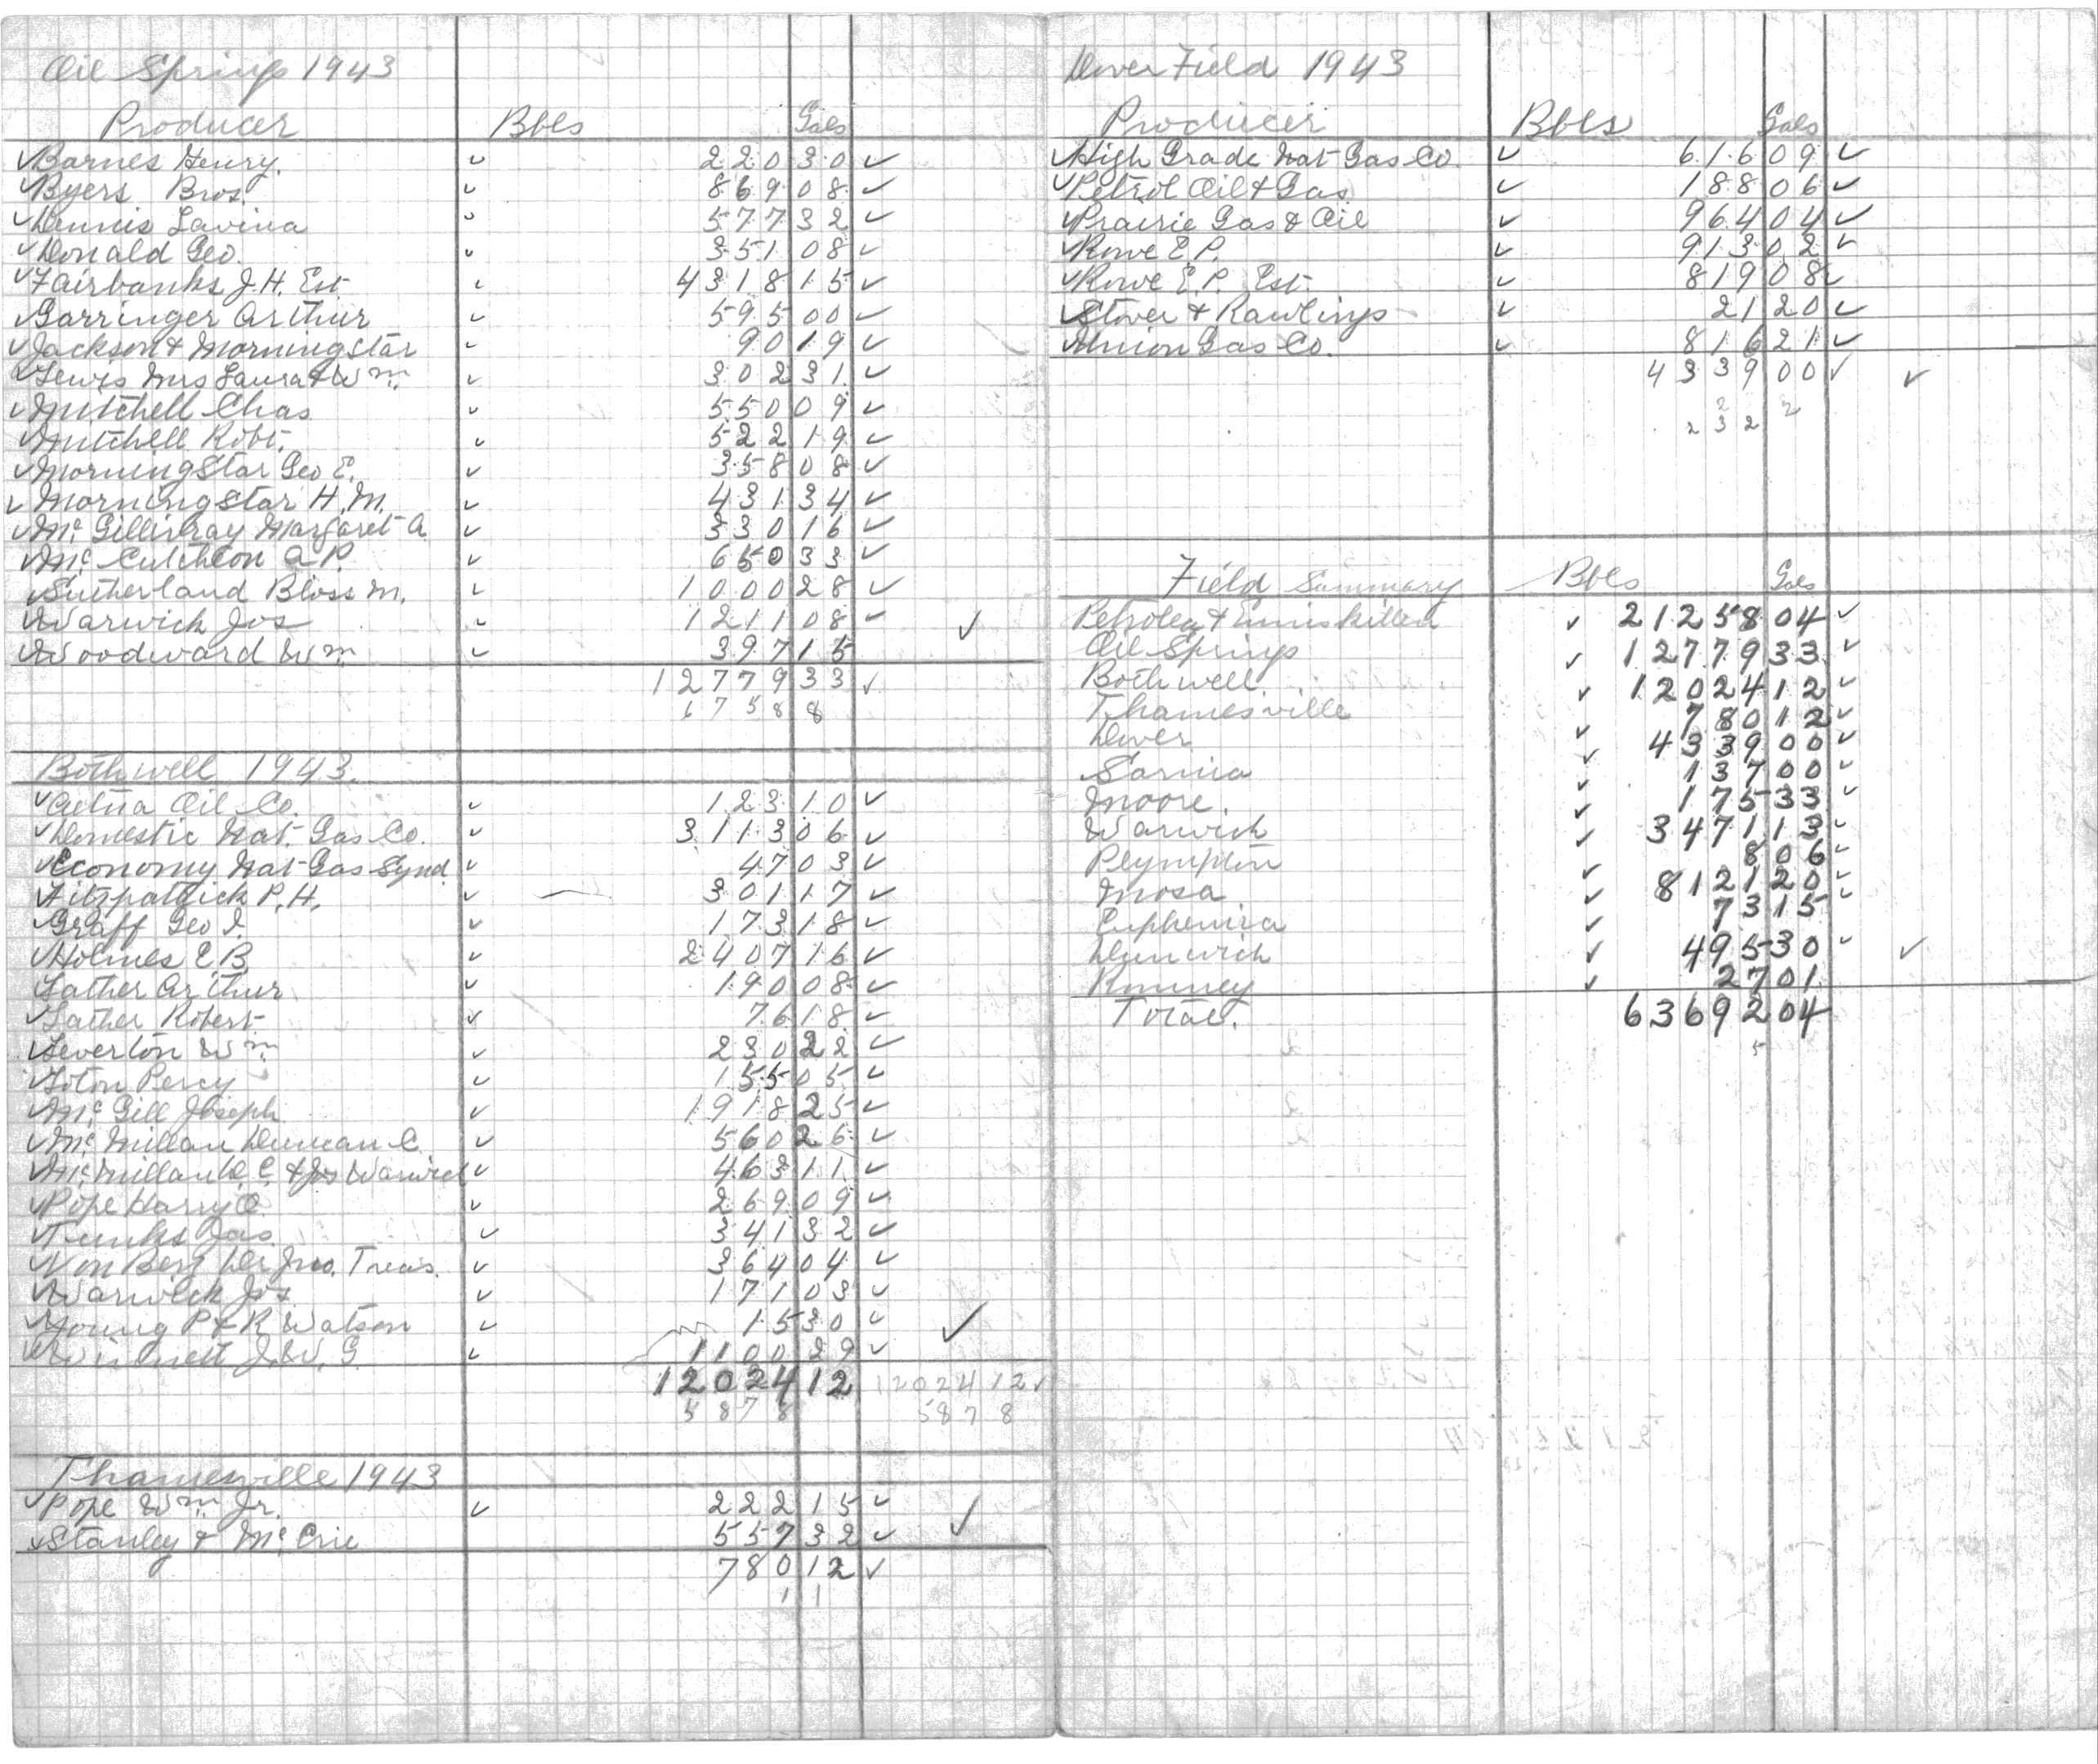 Oil Springs 1943
Producer Bbls Gals
Barnes Henry. 220 30
Byers Bros. 869 08
Dennis Lavina 577 32
Donald Geo. 351 08
Fairbanks J.H. Est. 4318 15
Garringer Arthur 595 00
Jackson & Morningstar 90 19
Lewis Mrs Laura & Wm. 302 31
Mitchell Chas 550 09
Mitchell Robt. 522 19
Morningstar Geo E. 358 08
Morningstar H.M. 431 34
Mc Gillivray Margaret A 330 16
Mc Cutcheon A P. 650 33
Sutherland Bloss M. 1000 28
Warwick Jos 1211 08
Woodward Wm 397 15
12779 33
6758 8
Bothwell 1943.
Aetna Oil Co. 123 10
Domestic Nat. Gas Co. 3113 06
Economy Nat Gas Synd 47 03
Fitzpatrick P.H. 301 17
Graff Geo I. 173 18
Holmes E B 2407 16
Lather Arthur 190 08
Lather Robert 76 18
Leverton Wm 230 22
Loton Percy 155 05
Mc Gill Joseph 1918 25
Mc Millan Duncan C. 560 26
Mc Millan D. C. & Jos Warwick 463 11
Pope Harry O 269 09
Tunks Jas 341 32
Von Berg De Jno. Treas. 364 04
Warwick Jos. 171 03
Young P & R Watson 15 30
Winnett J.W. G. 1100 29
12024 12 12024 12
5878 587 8
Thamesville 1943
Pope Wm Jr. 222 15
Stanley & Mc Crie 557 32
780 12
1 1
Dover Field 1943
Producer Bbls Gals
High Grade Nat Gas Co. 616 09
Petrol Oil & Gas 188 06
Prairie Gas & Oil 964 04
Rowe E P. 913 02
Rowe E.P. Est. 819 08
Stover & Rawlings 21 20
Union Gas Co. 816 21
4339 00
2 2
232 2
Field Summary Bbls Gals
Petrolea & Enniskillen 21258 04
Oil Springs 12779 33
Bothwell 12024 12
Thamesville 780 12
Dover 4339 00
Sarnia 137 00
Moore. 175 33
Warwick 3471 13
Plympton 8 06
Mosa 8121 20
Euphemia 73 15
Dunwich 495 30
Romney 27 01
Total. 63692 04
5